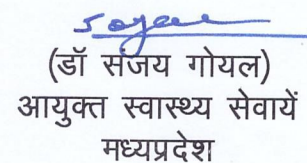 (डॉ संजय गोयल)
आयुक्त स्वास्थ्य सेवायें
मध्यप्रदेश